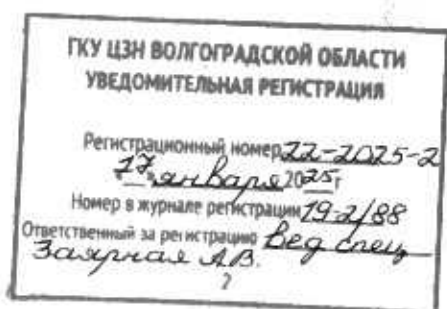 ГКУ ЦЗН ВОЛГОГРАДСКОЙ ОБЛАСТИ
УВЕДОМИТЕЛЬНАЯ РЕГИСТРАЦИЯ
Регистрационный номер 22-2025-2
"17" января 2025г
Номер в журнале регистрации 19-2/88
Ответственный за регистрацию Вед спец
Заярная А.В.